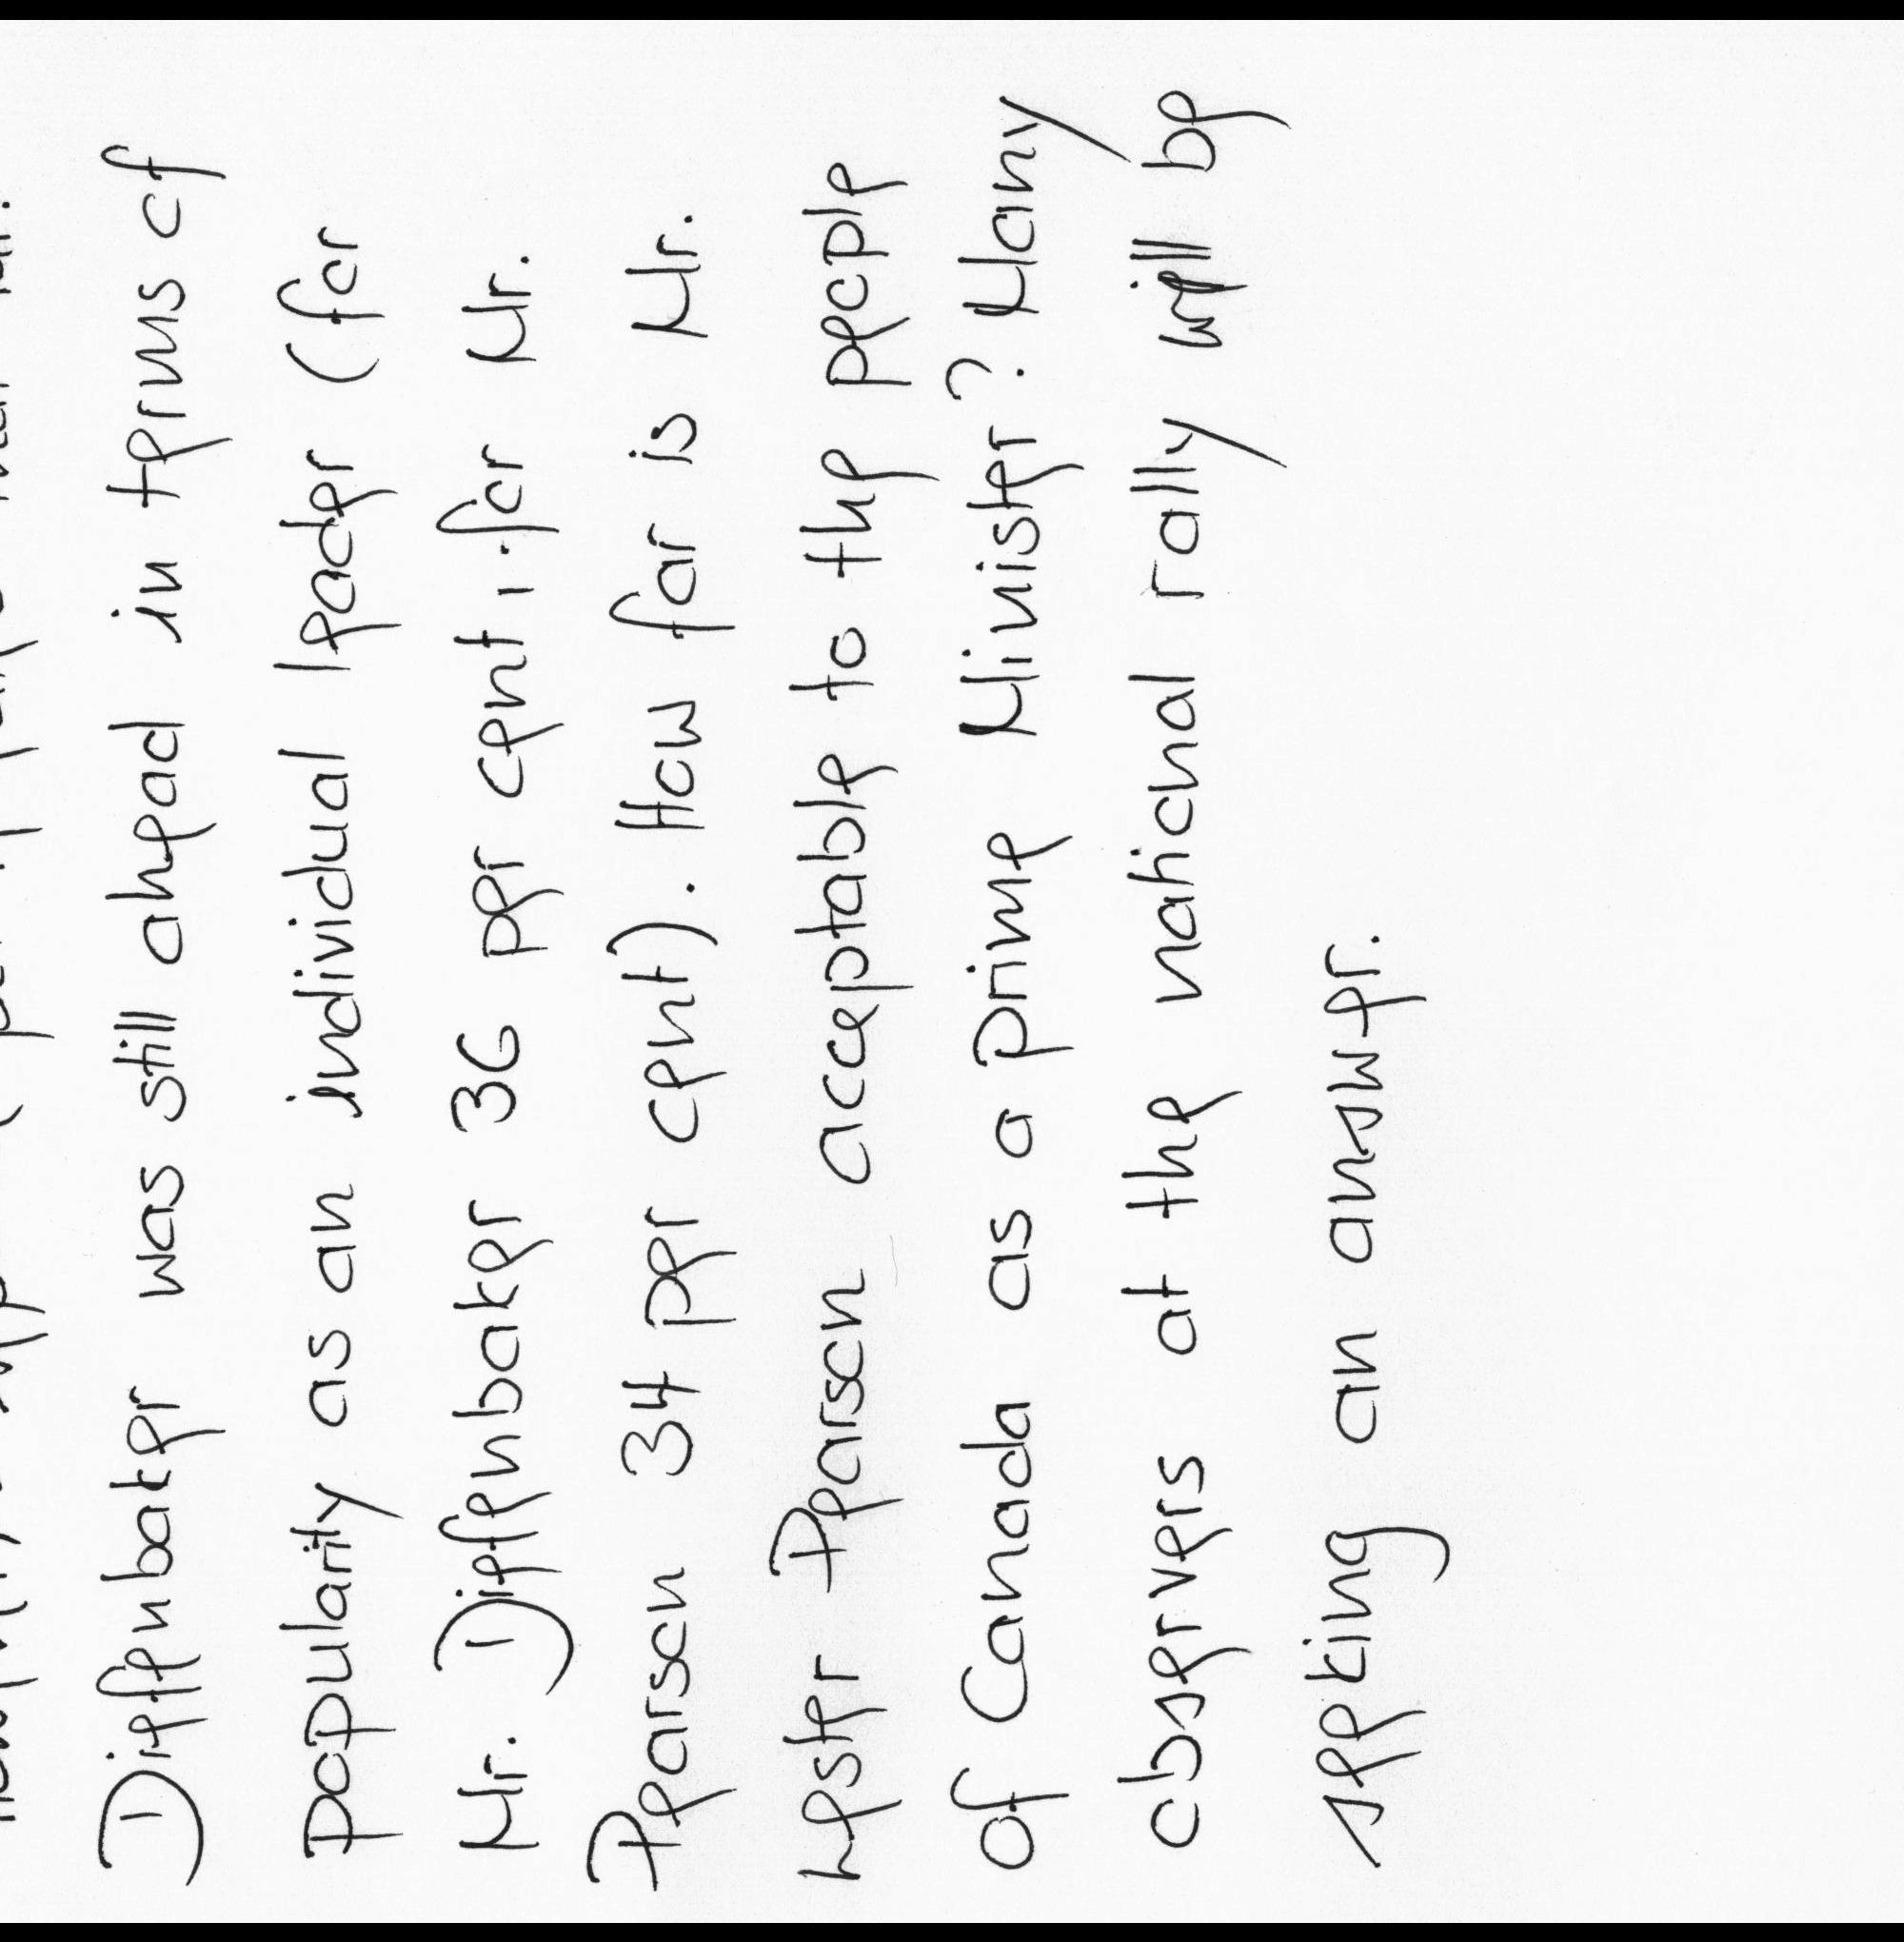 Diefenbaker was still ahead in terms of
popularity as an individual leader (for
Mr. Diefenbaker 36 per cent, for Mr.
Pearson 34 per cent). How far is Mr.
Lester Pearson acceptable to the people
of Canada as a Prime Minister? Many
observers at the national rally will be
seeking an answer.